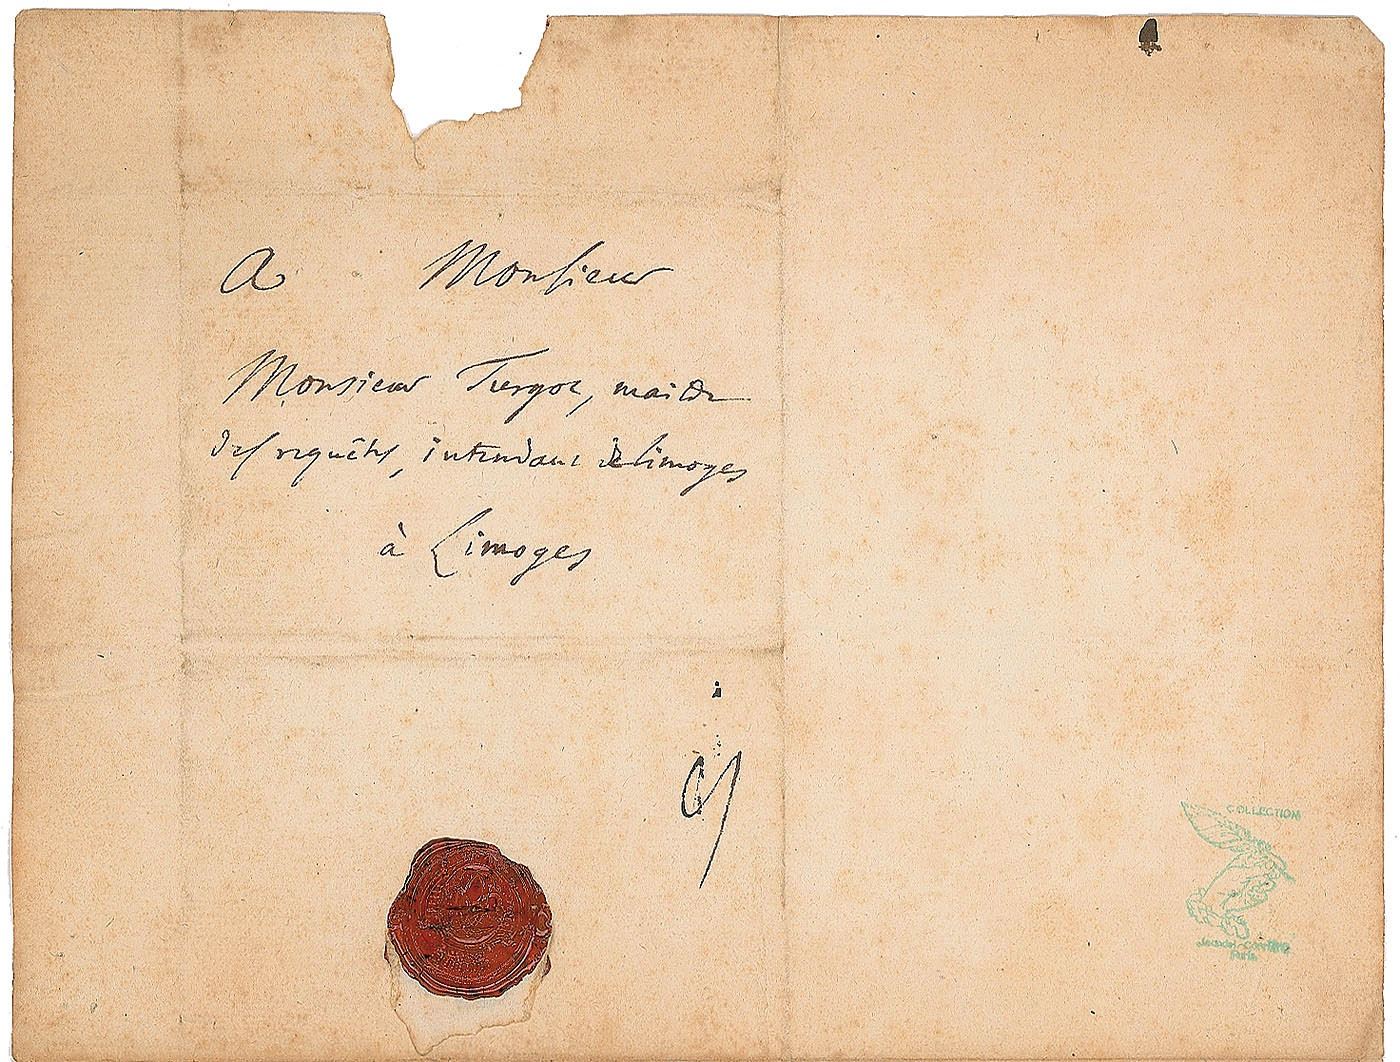 A Monsieur
Monsieur Turgot, maitre
des requêtes, intendant de limoges
à Limoges
COLLECTION
Paris